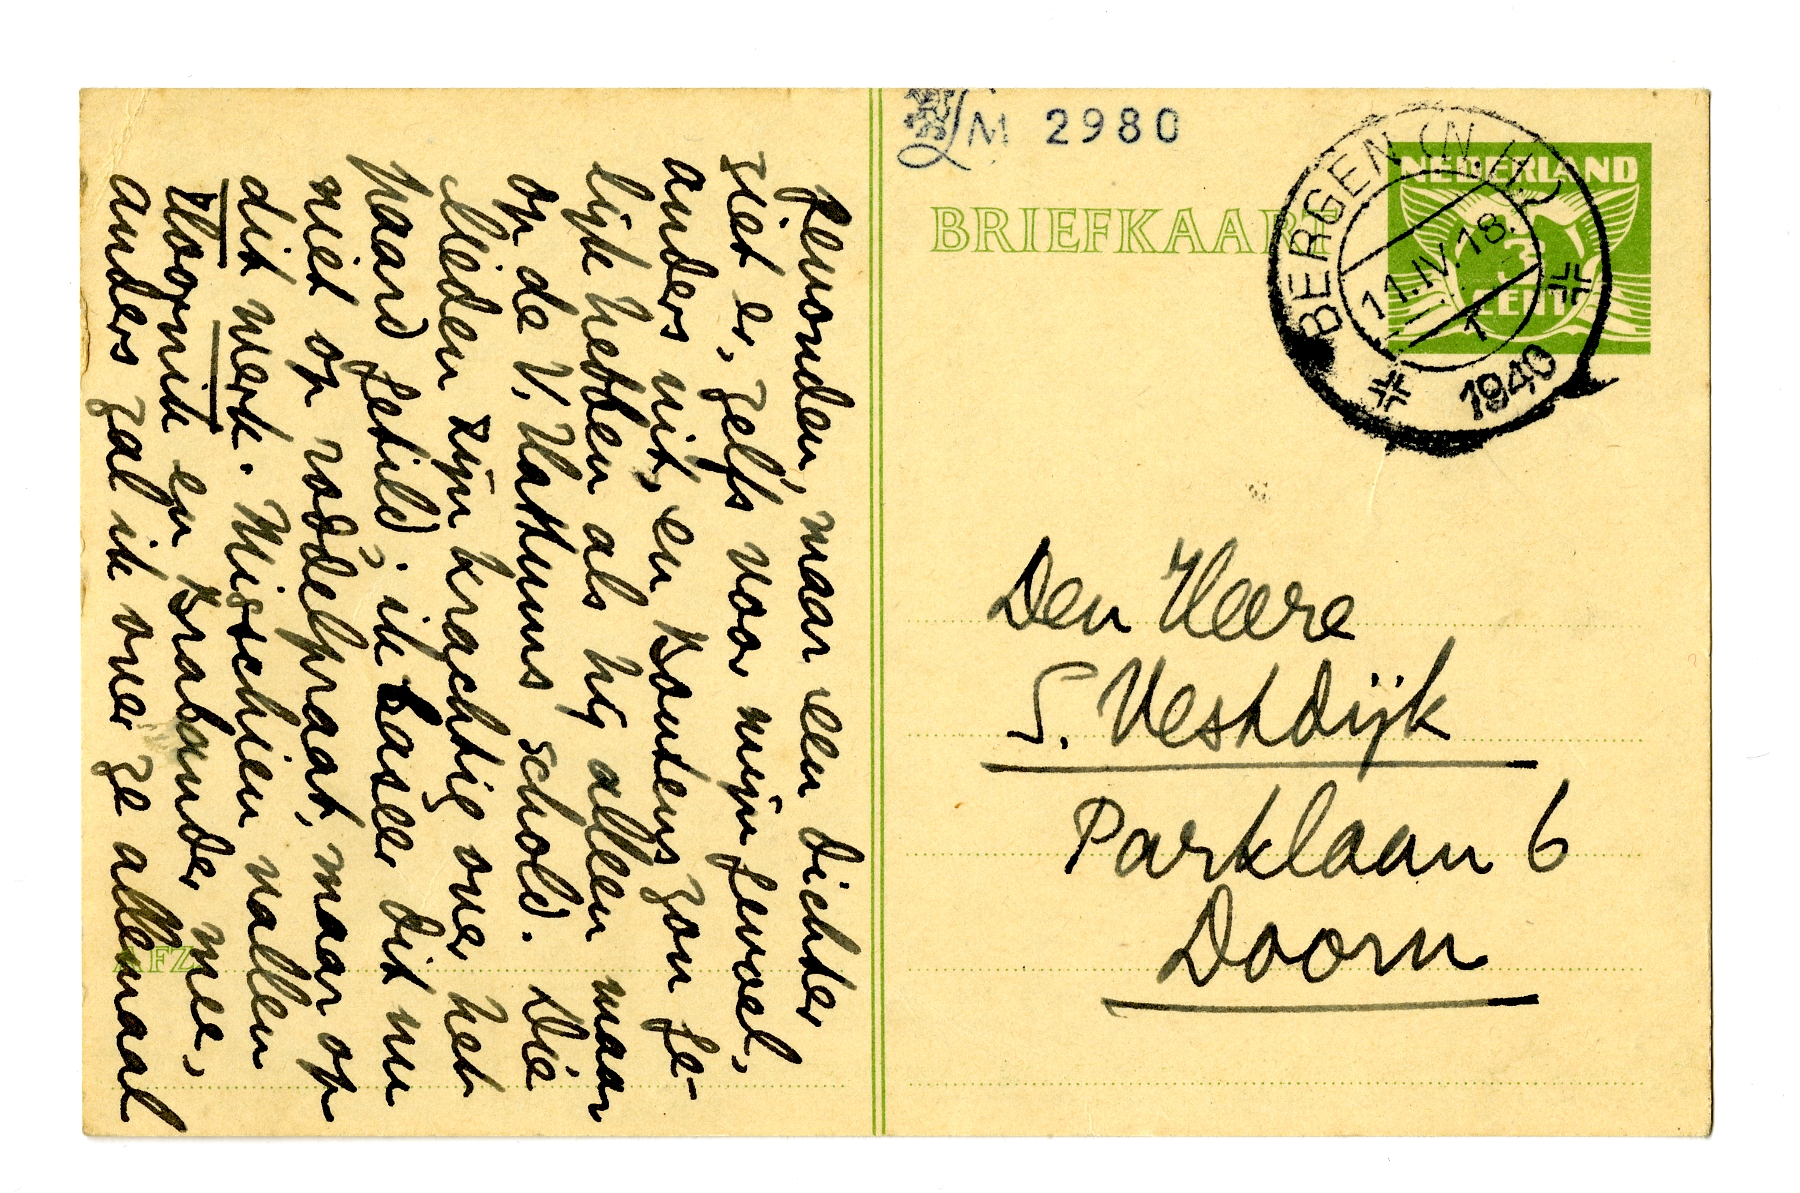 LM 2980
BRIEFKAART
NEDERLAND
3
CENT
BERGEN (N.H.)
11.IV.18.
1
1940
Den Heere
S. Vestdijk
Parklaan 6
Doorn
gevonden, maar een dichter
ziet er, zelfs voor mijn gevoel,
anders uit, en Boutens zou ge-
lijk hebben als hij alleen maar
op de V. Hattums schold. Die
lieden zijn krachtig over het
paard getild; ik baseer dit nu
niet op roddelpraat, maar op
dit werk. Misschien vallen
Hoornik en Brabander mee,
anders zal ik over ze allemaal
AFZ.